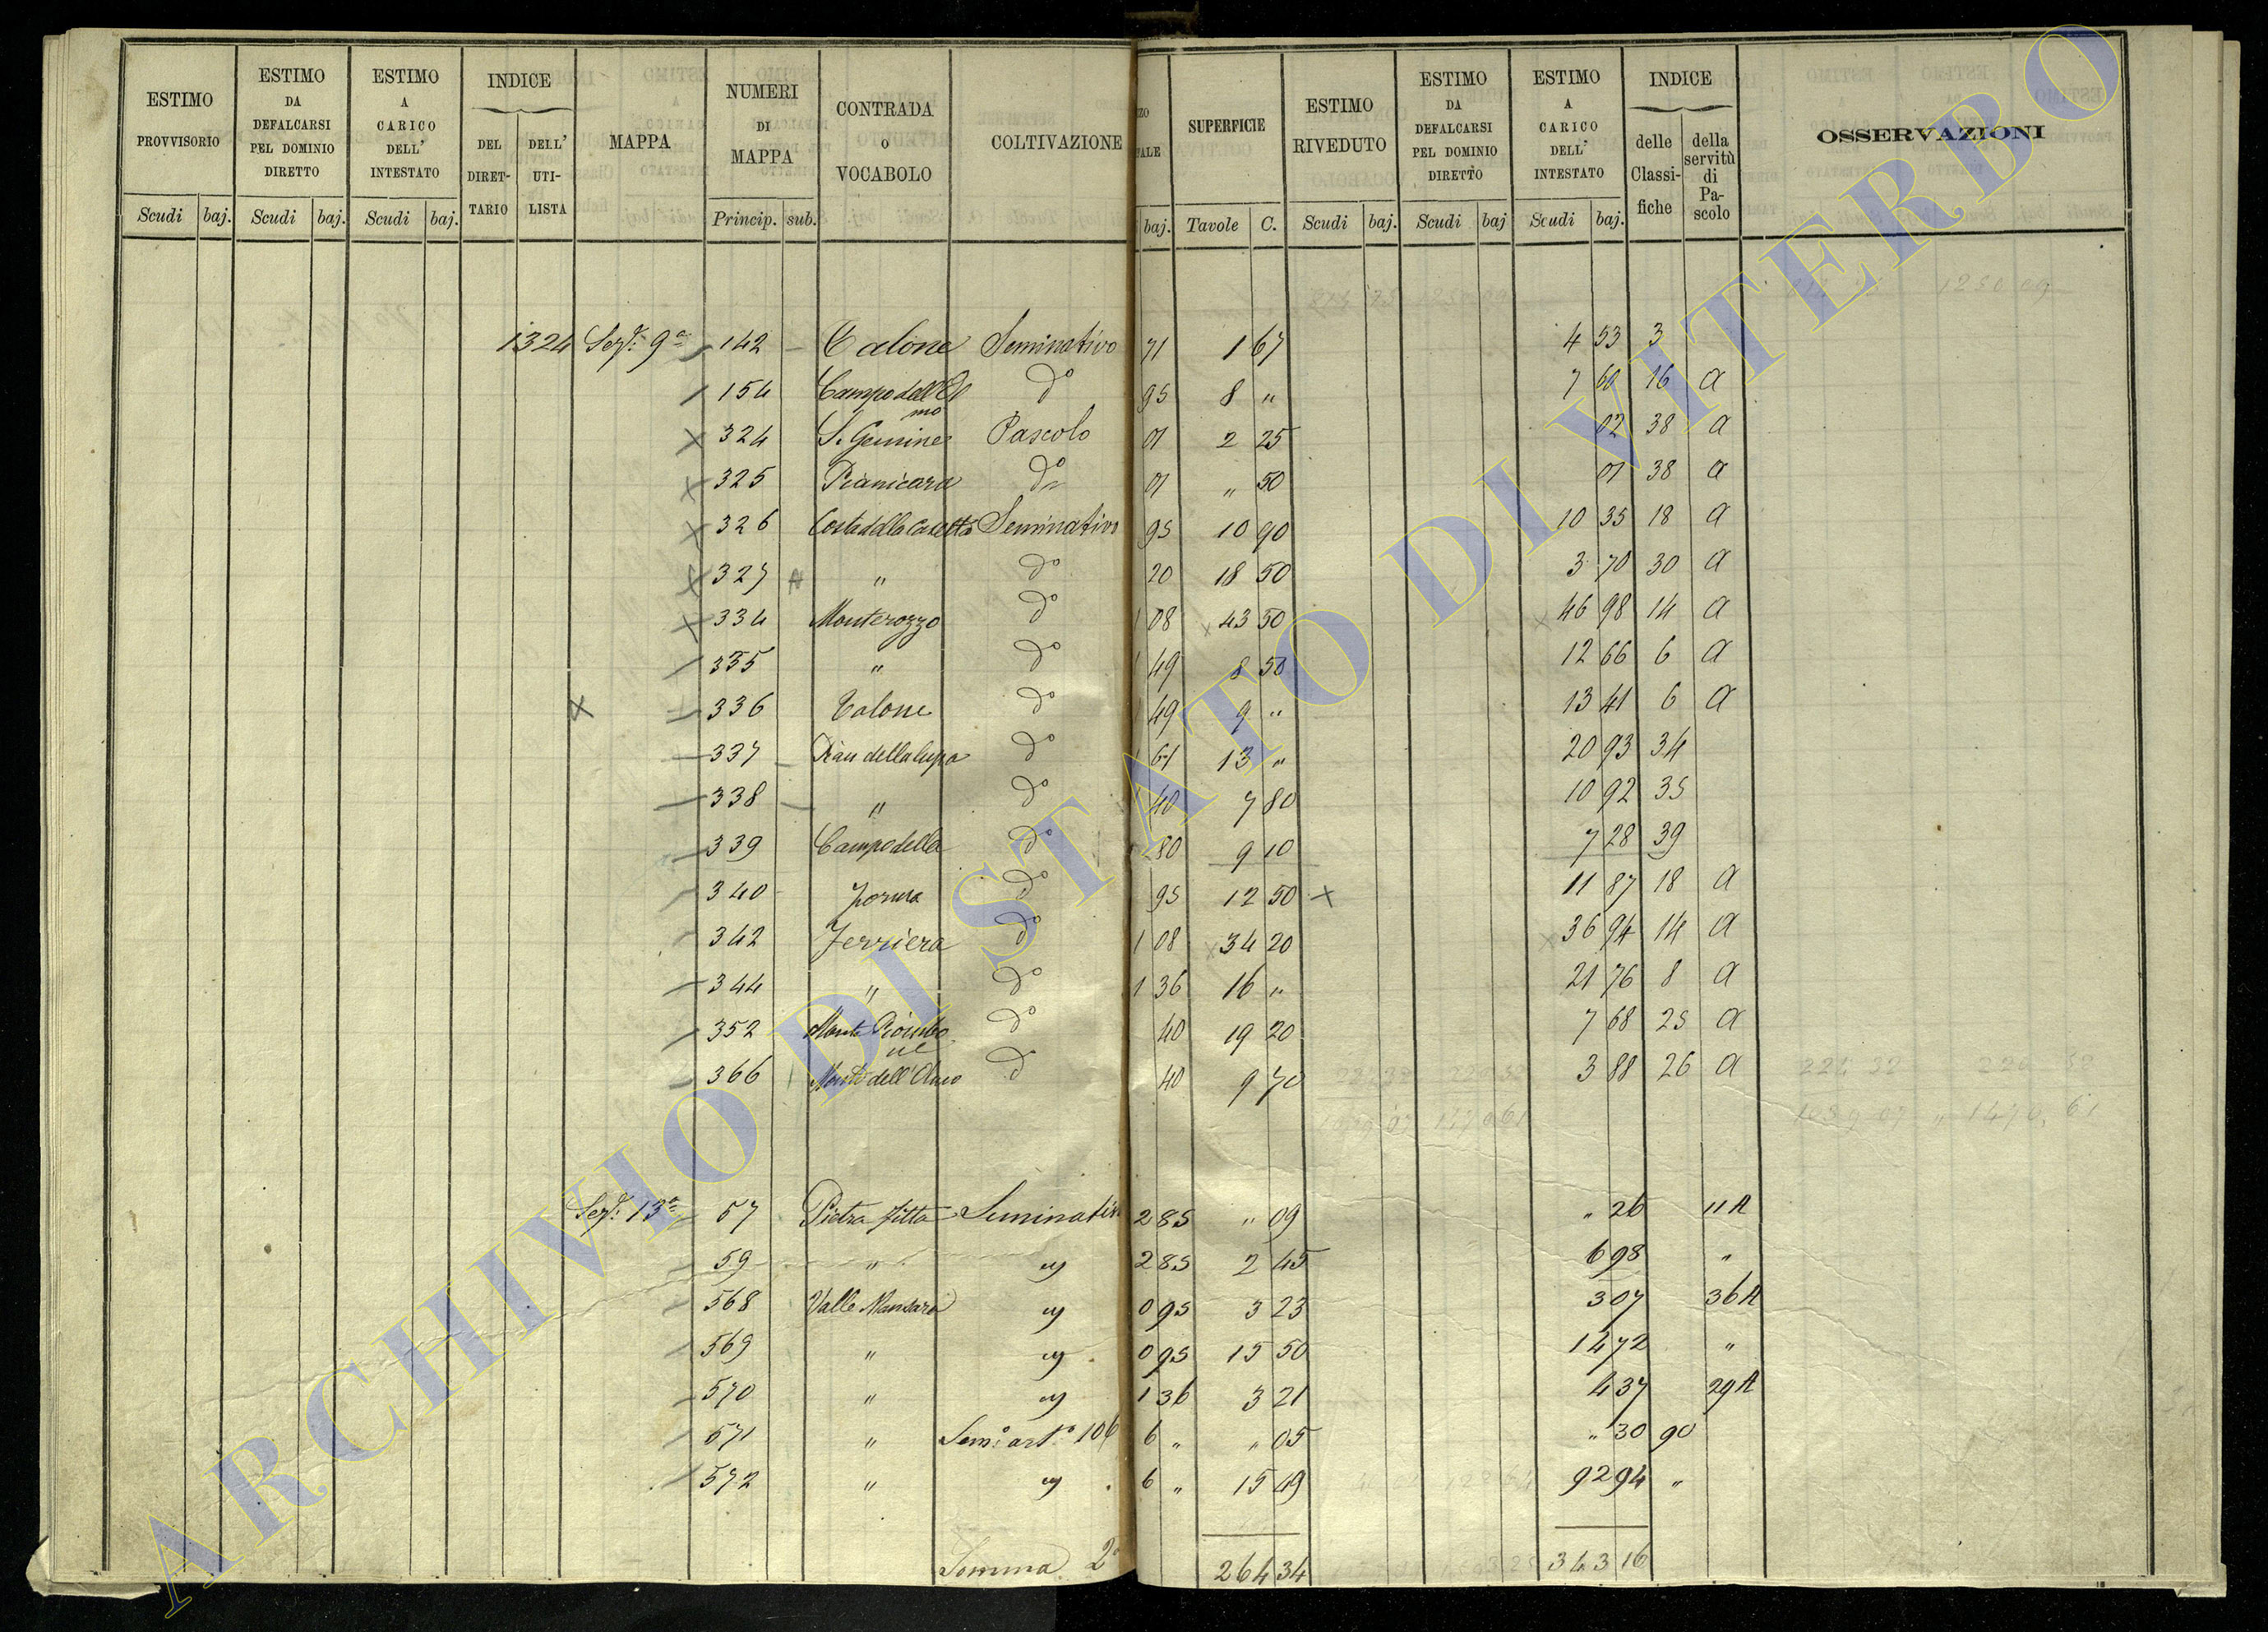 ESTIMO PROVVISORIO Scudi baj. | ESTIMO DA DEFALCARSI PEL DOMINIO DIRETTO Scudi baj. | ESTIMO A CARICO DELL' INTESTATO Scudi baj. | INDICE DEL DIRETTARIO DELL' UTILISTA | MAPPA | NUMERI DI MAPPA Princip. sub. | CONTRADA O VOCABOLO | COLTIVAZIONE | baj. | SUPERFICIE Tavole C. | ESTIMO RIVEDUTO Scudi baj. | ESTIMO DA DEFALCARSI PEL DOMINIO DIRETTO Scudi baj | ESTIMO A CARICO DELL' INTESTATO Scudi baj. | INDICE delle Classifiche della servitù di Pascolo | OSSERVAZIONI
1324 Sez. 9a 142 Calone Seminativo 71 1 67 4 53 3
154 Campo dell'Ol d° 95 8 " 7 60 16 a
mo
324 S. Gemine Pascolo 01 2 25 02 38 a
325 Pianicara d° 01 " 50 01 38 a
326 Costa della Casetta Seminativo 95 10 90 10 35 18 a
327 A " d° 20 18 50 3 70 30 a
334 Monterozzo d° 1 08 x 43 50 x 46 98 14 a
335 " d° 1 49 8 50 12 66 6 a
x 336 Calone d° 1 49 9 " 13 41 6 a
337 Pian della lupa d° 1 61 13 " 20 93 34
338 " d° 1 40 7 80 10 92 35
339 Campo della d° 80 9 10 7 28 39
340 Forma d° 95 12 50 x 11 87 18 a
342 Ferriera d° 1 08 x 34 20 x 36 94 14 a
344 " d° 1 36 16 " 21 76 8 a
352 Monte Piombo d° 40 19 20 7 68 25 a
ne
366 Monte dell'Olmo d° 40 9 70 3 88 26 a
Sez. 13a 57 Pietra fitta Seminativo 2 85 " 09 " 26 11 A
59 " " 2 85 2 45 6 98 "
568 Valle Mansara " 0 95 3 23 3 07 36 A
569 " " 0 95 15 50 14 72 "
570 " " 1 36 3 21 4 37 29 A
571 " Sem. art.° 106 6 " " 05 " 30 90
572 " " 6 " 15 49 92 94 "
Somma 2a 264 34 343 16
ARCHIVIO DI STATO DI VITERBO